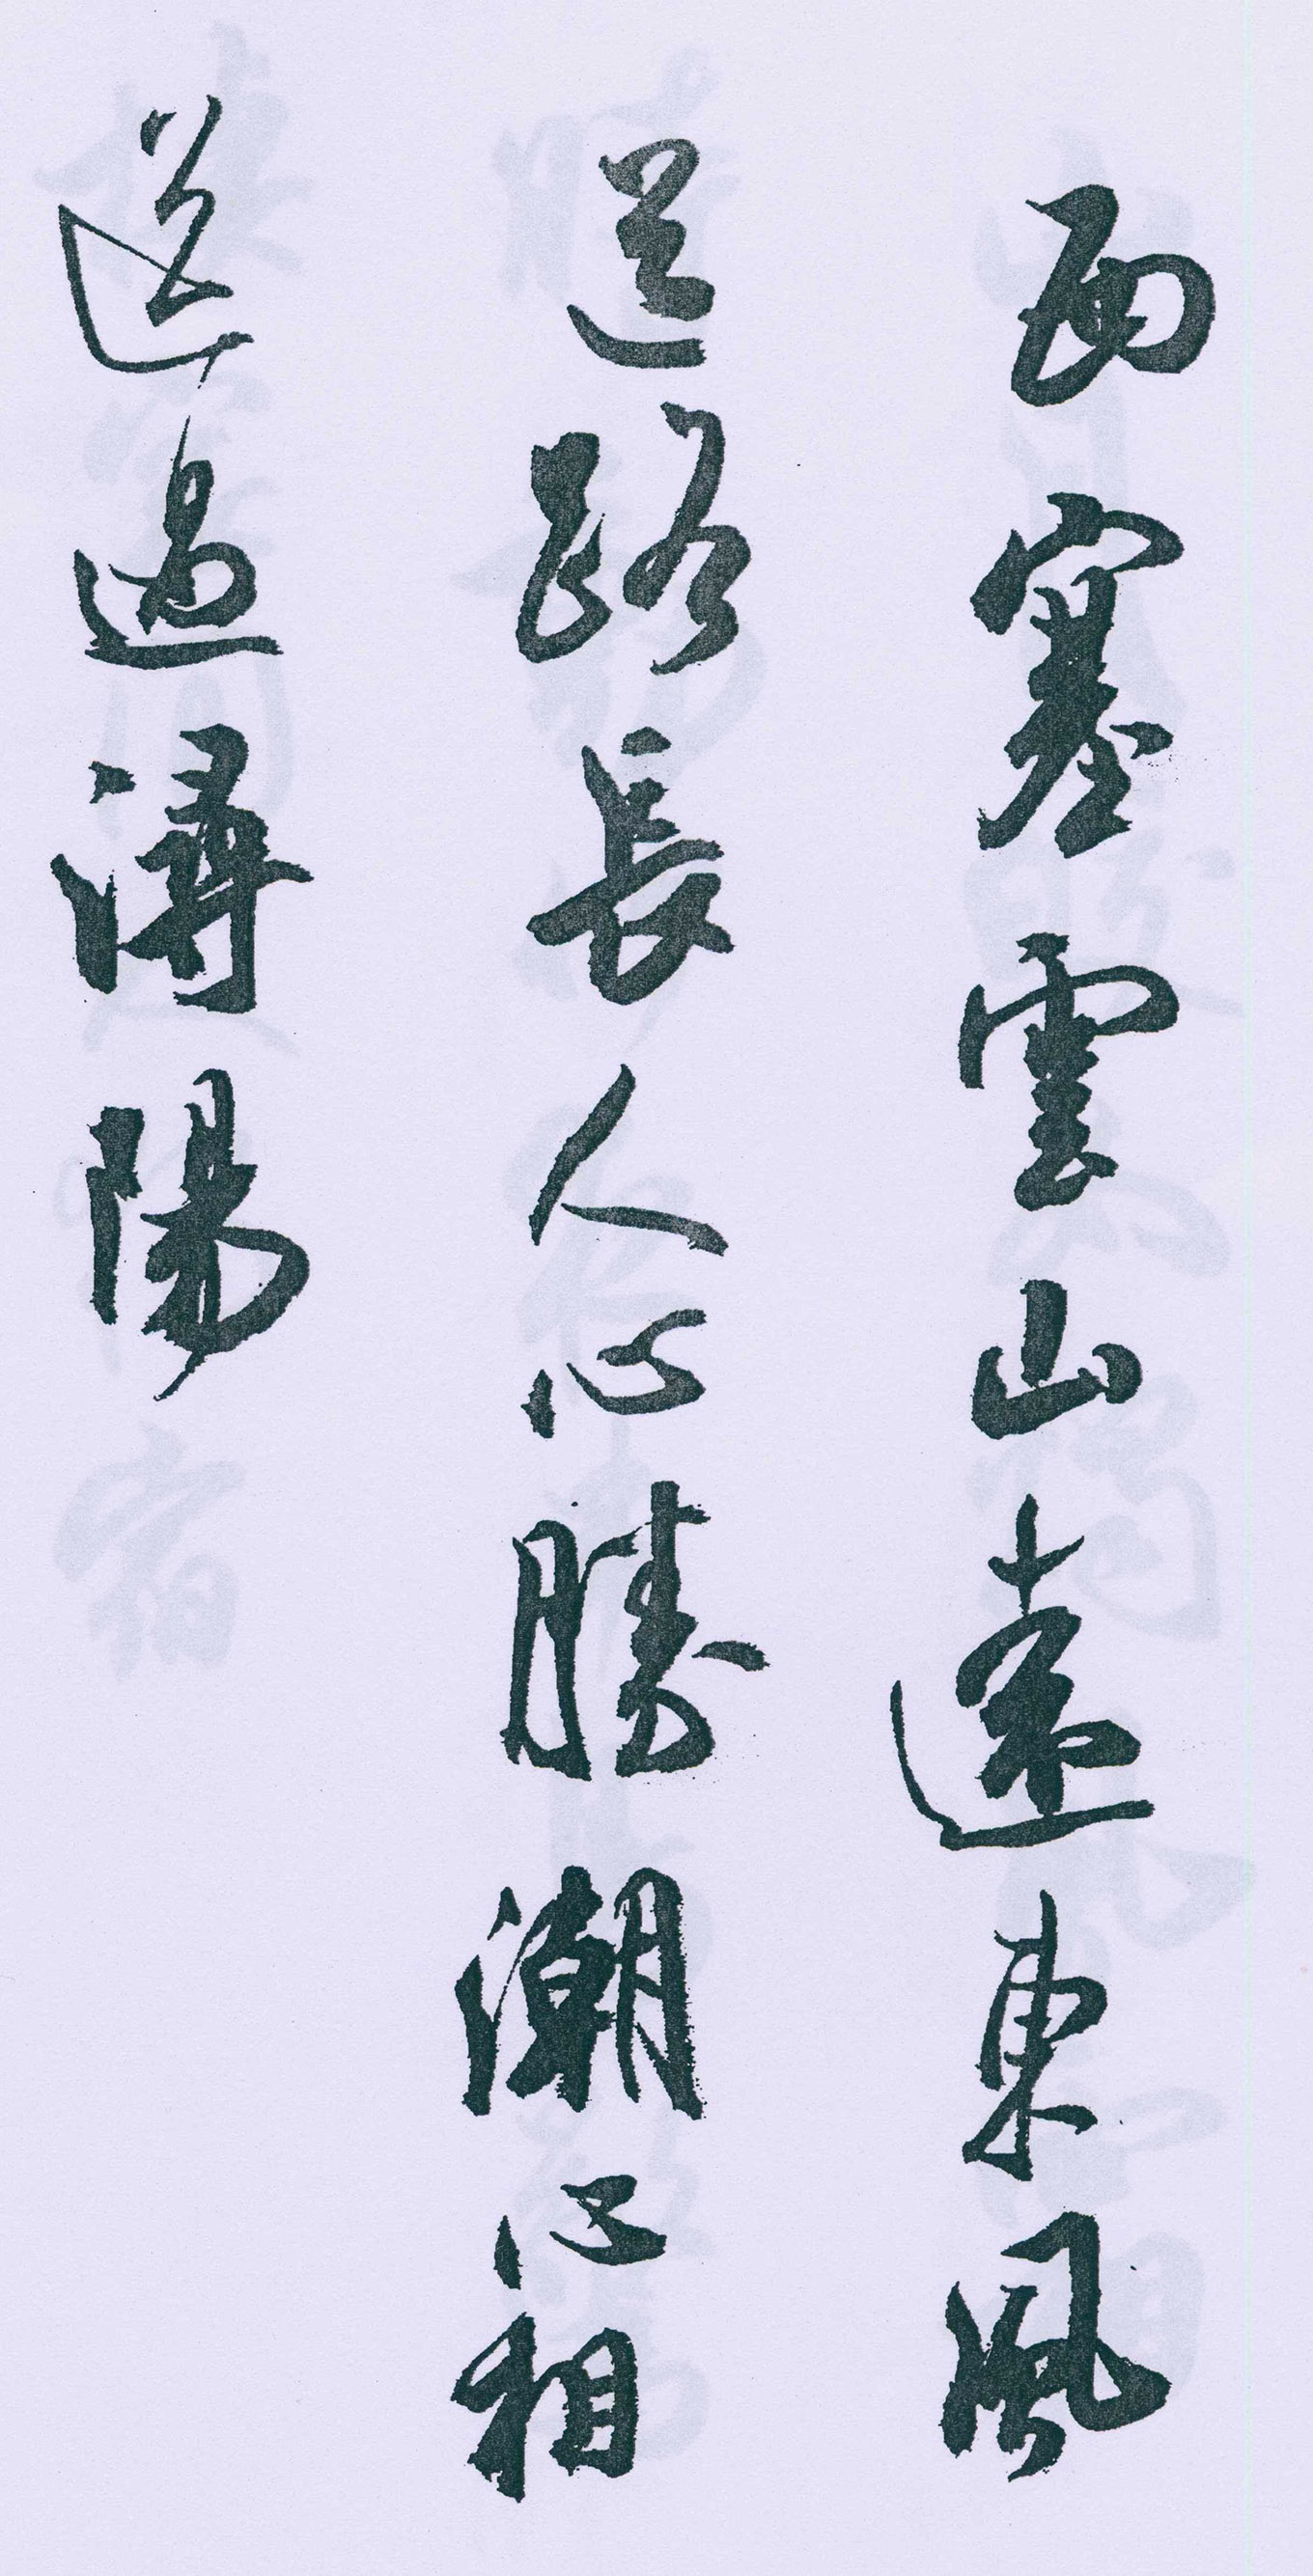 西塞雲山遠東風
道路長人心勝潮心相
送過潯陽